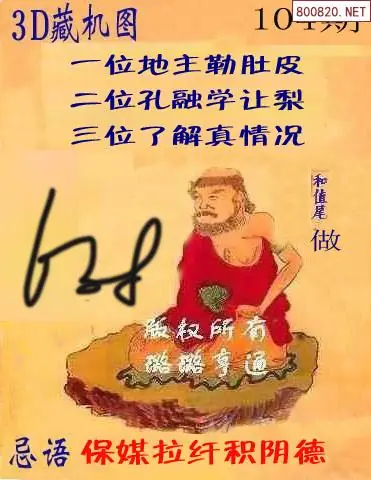 3D藏机图
800820.NET
一位地主勒肚皮
二位孔融学让梨
三位了解真情况
和值尾
做
版权所有
璐璐亨通
忌语 保媒拉纤积阴德